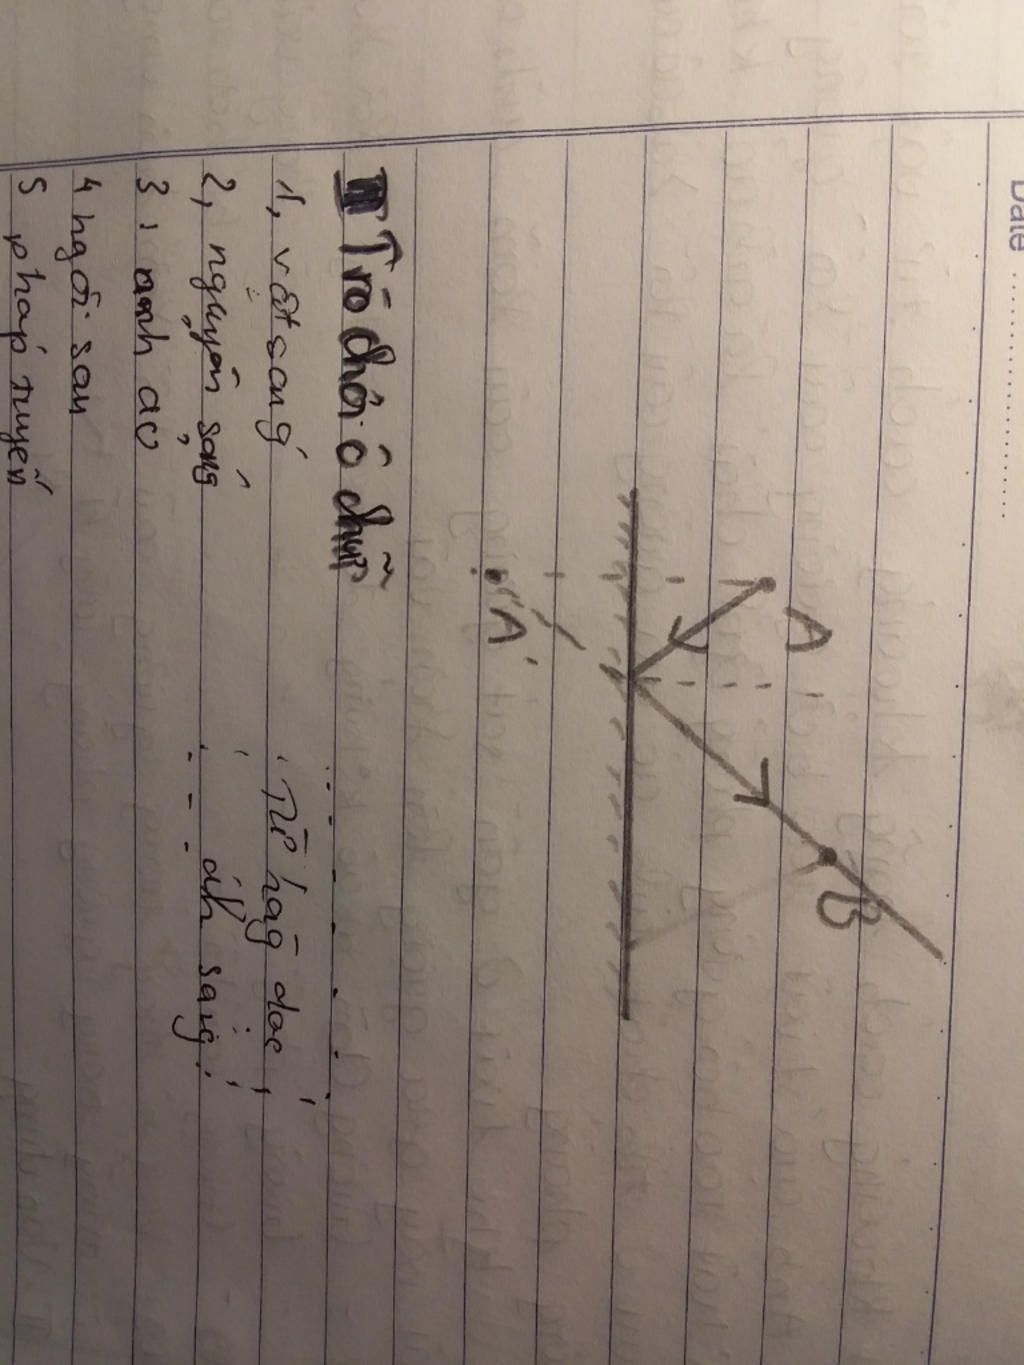 Date
A
B
A'
II Trò chơi ô chữ
1, vật sáng
2, nguyồn sáng
3, ảnh ảo
4 ngôi sao
5 pháp tuyến
Từ hàng dọc
ánh sáng.